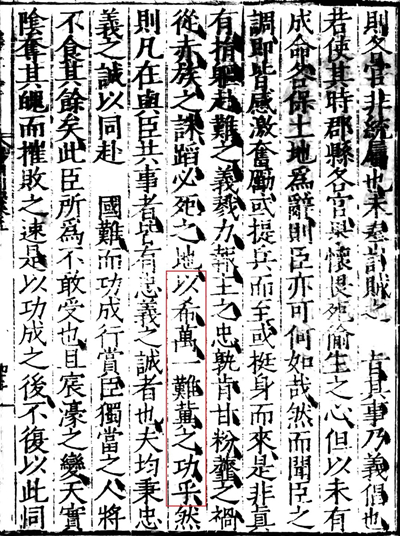 則各官非統屬也未奉討賊之 旨其事乃義倡也
若使其時郡縣各官果懷畏死偷生之心但以未有
成命各保土地為辭則臣亦可何如哉然而聞臣之
調即皆感激奮勵或提兵而至或挺身而來是非真
有捐軀赴難之義戮力報主之忠孰肯甘粉虀之禍
從赤族之誅蹈必死之地以希萬一難冀之功乎然
則凡在與臣共事者皆有忠義之誠者也夫均秉忠
義之誠以同赴 國難而功成行賞臣獨當之人將
不食其餘矣此臣所為不敢受也且宸濠之變天實
陰奪其魄而摧敗之速是以功成之後不復以此同